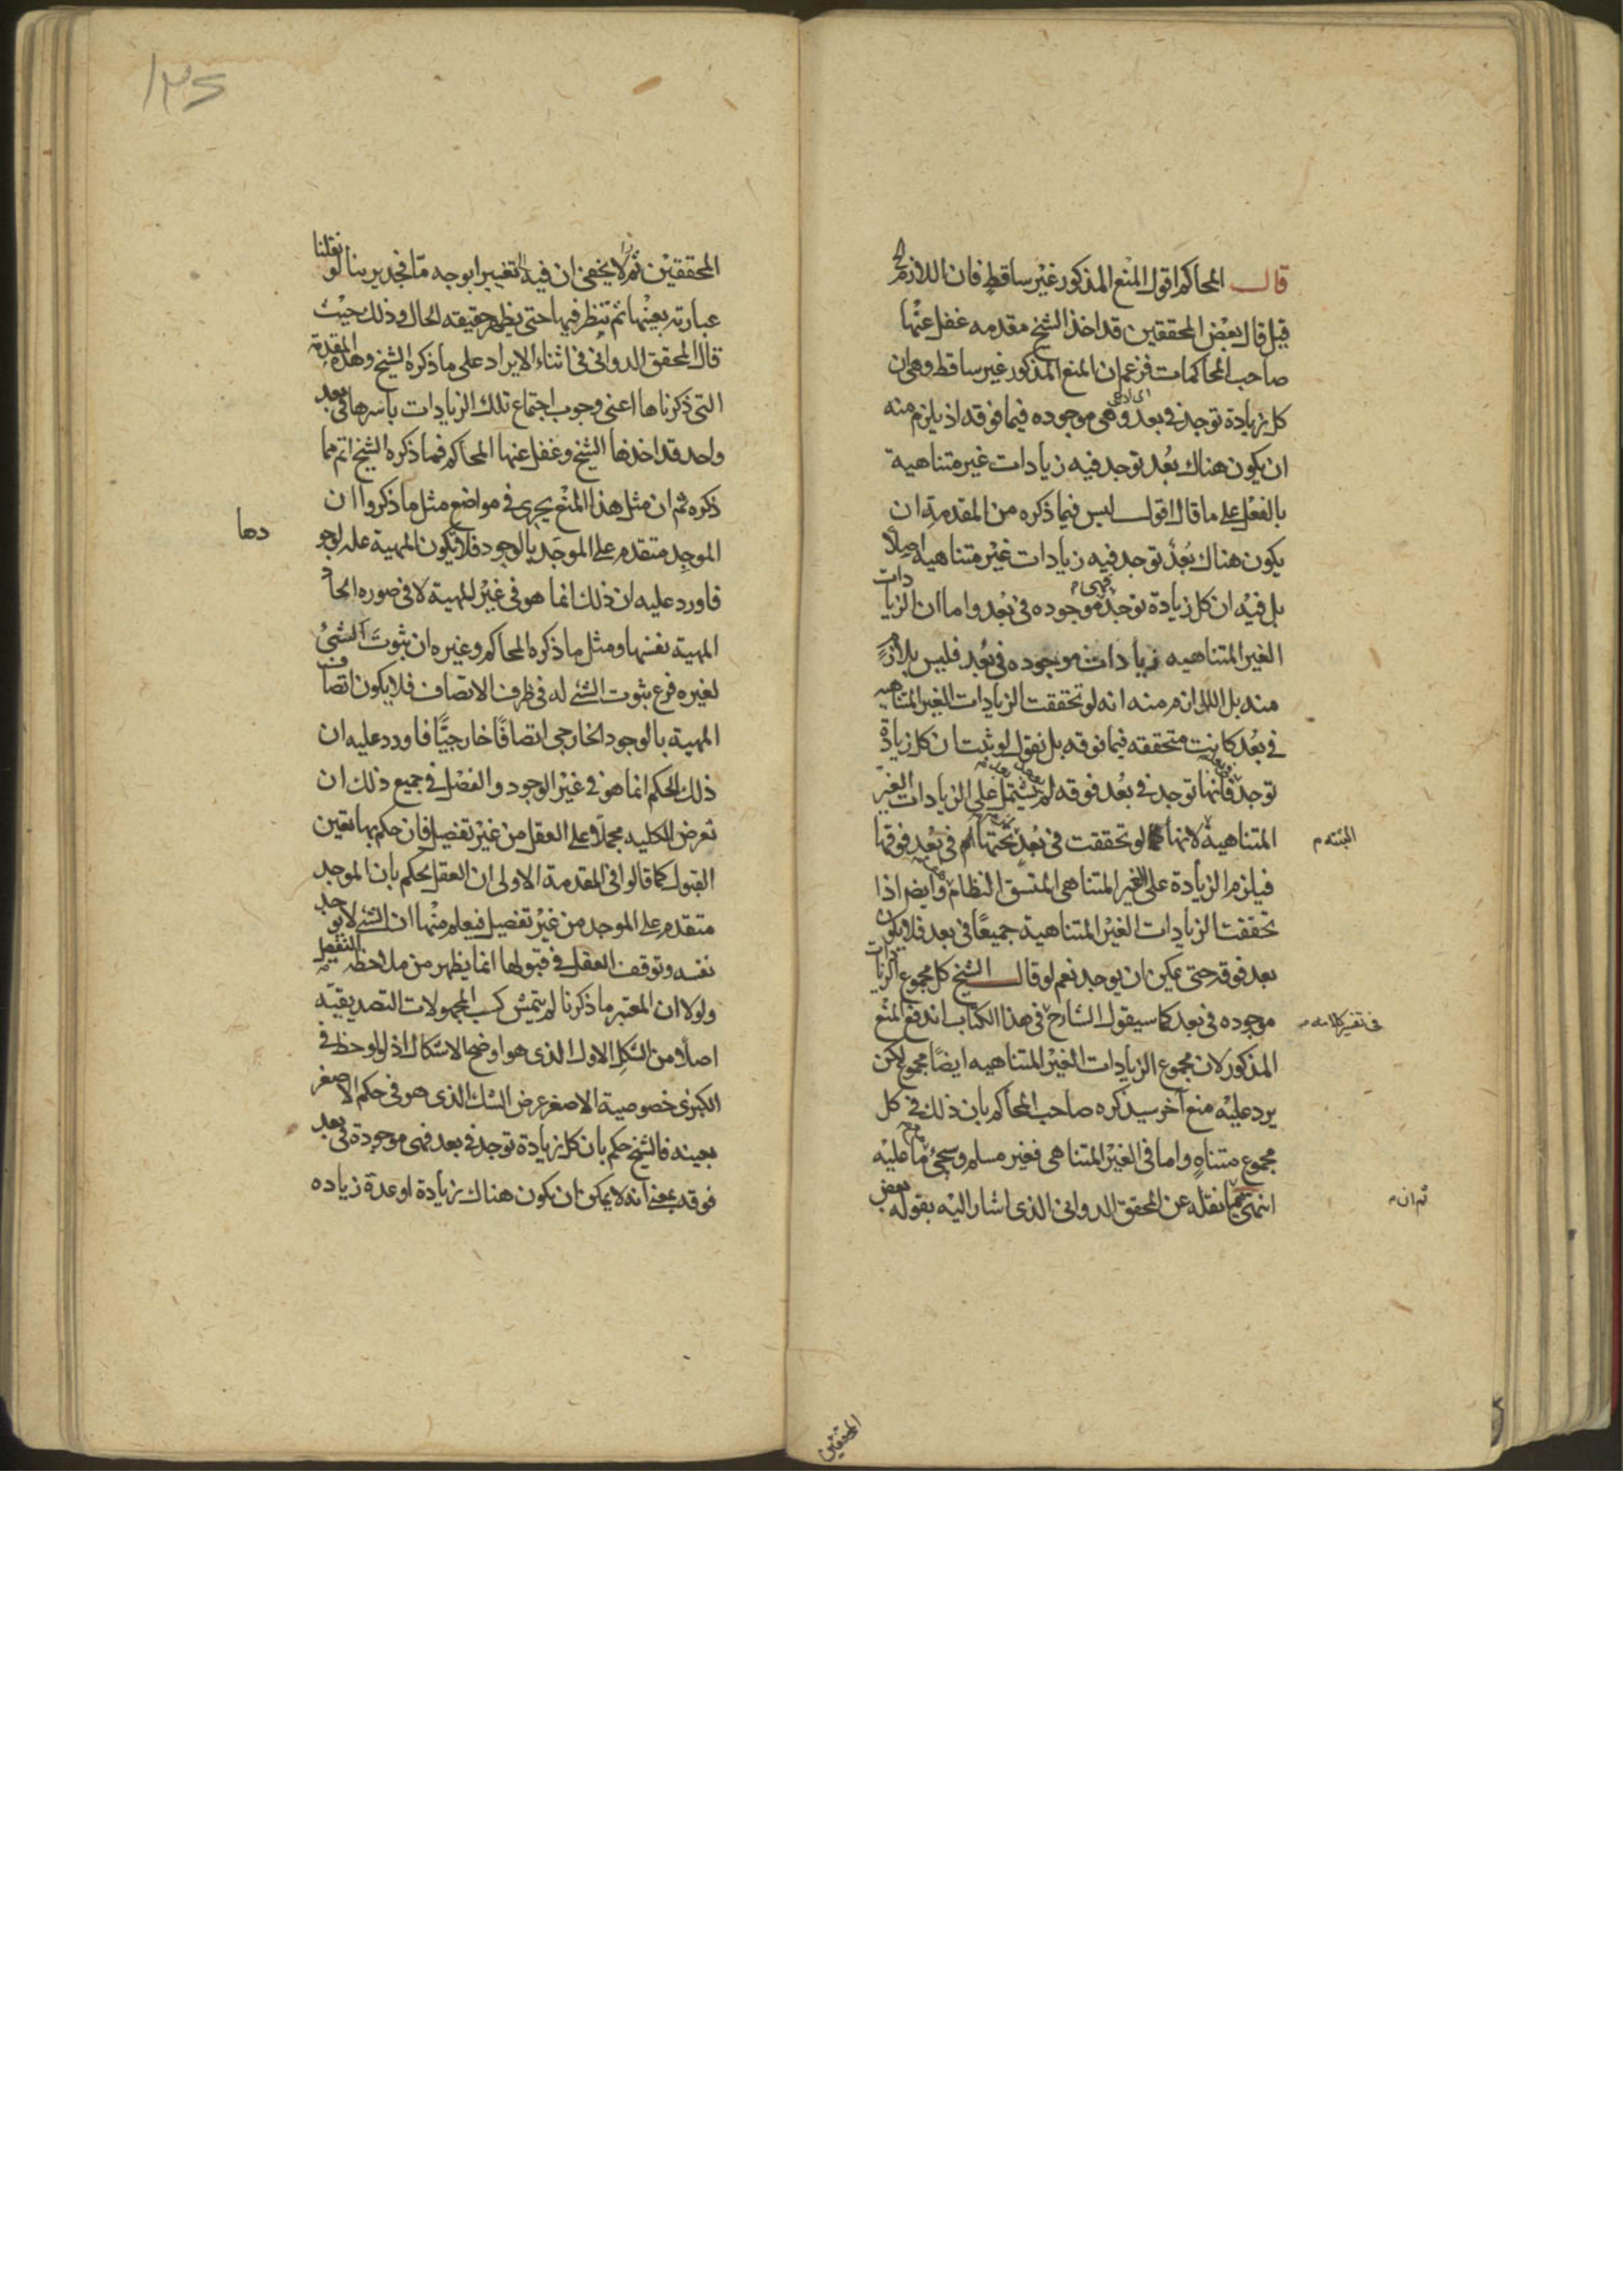 قال المحاكم اقول المنع المذكور غير ساقط فان اللازم ح
قيل قال بعض المحققين قد اخذ الشيخ مقدمه غفل عنها
صاحب المحاكمات فزعم ان المنع المذكور غير ساقط وهي ان
كل زيادة توجد في بعد وهي موجوده فيما فوقه اذ يلزم منه
ان يكون هناك بُعد توجد فيه زيادات غير متناهية
بالفعل على ما قال اقول ليس فيما ذكره من المقدمة ان
يكون هناك بُعدٌ توجد فيه زيادات غير متناهيه اصلًا
بل فيه ان كل زيادة توجد فهي موجوده في بُعد واما ان الزيادات
الغير المتناهيه زيادات موجوده في بُعد فليس بلازم
منه بل اللازم منه انه لو تحققت الزيادات الغير المتناهيه
في بُعد كانت متحققه فيما فوقه بل نقول لو ثبت ان كل زيادة
توجد فانها توجد في بُعد فوقه لم يشتمل على الزيادات الغير
المتناهية لانها لو تحققت في بُعد تحتها ام في بُعد فوقها
البتة م
فيلزم الزيادة على الغير المتناهي المتسق النظام وايضا اذا
تحققت الزيادات الغير المتناهية جميعًا في بعد فلا يكون
بعد فوقه حتى يمكن ان يوجد نعم لو قال الشيخ كل مجموع الزيادات
موجوده في بعد كما سيقول الشارح في هذا الكتاب اندفع المنع
في تفسير كلامه م
المذكور لان مجموع الزيادات الغير المتناهيه ايضًا مجموع لكن
يرد عليه منع آخر سيذكره صاحب المحاكم بان ذلك في كل
مجموع متناهٍ واما في الغير المتناهي فغير مسلم وسيجئ ما عليه
انتهى ما نقله عن المحقق الدواني الذي اشار اليه بقوله بعض
ثم ان م
المحققين
١٣٥
المحققين ثم لا يخفى ان فيه تغييرا بوجه مّا فجدير بنا لو نقلنا
عبارته بعينها ثم ننظر فيها حتى يظهر حقيقه الحال وذلك حيث
قال المحقق الدواني في اثناء الايراد على ما ذكره الشيخ وهذه المقدمة
التي ذكرناها اعني وجوب اجتماع تلك الزيادات باسرها في بعد
واحد قد اخذها الشيخ وغفل عنها المحاكم فما ذكره الشيخ اتم مما
ذكره ثم ان مثل هذا المنع يجري في مواضع مثل ما ذكروا ان
الموجِد متقدم على الموجَد بالوجود فلا تكون المهية علة لوجو
دها
فاورد عليه ان ذلك انما هو في غير المهية لا في صوره اتحاد
المهية نفسها ومثل ما ذكره المحاكم وغيره ان ثبوتَ الشئ
لغيره فرع ثبوت الشئ له في ظرف الاتصاف فلا يكون اتصاف
المهية بالوجود الخارجي اتصافًا خارجيًّا فاورد عليه ان
ذلك الحكم انما هو في غير الوجود والفصل في جميع ذلك ان
تعرض الكليه مجملًا على العقل من غير تفصيل فان حكم بها تعين
القبول كما قالوا في المقدمة الاولى ان العقل يحكم بان الموجد
متقدم على الموجد من غير تفصيل فيعلم منها ان الشئ لا يوجد
نفسه وتوقف العقل في قبولها انما يظهر من ملاحظه التفصيل
ولولا ان المعتبر ما ذكرنا لم يتمش كسب المجهولات التصديقيّه
اصلًا من الشكل الاول الذي هو اوضح الاشكال اذ لو لوحظ في
الكبرى خصوصية الاصغر عرض الشك الذي هو في حكم الاصغر
بعينه فالشيخ حكم بان كل زيادة توجد في بعد فهي موجودة في بعد
فوقه بمعنى انه لا يمكن ان يكون هناك زيادة او عدة زياده